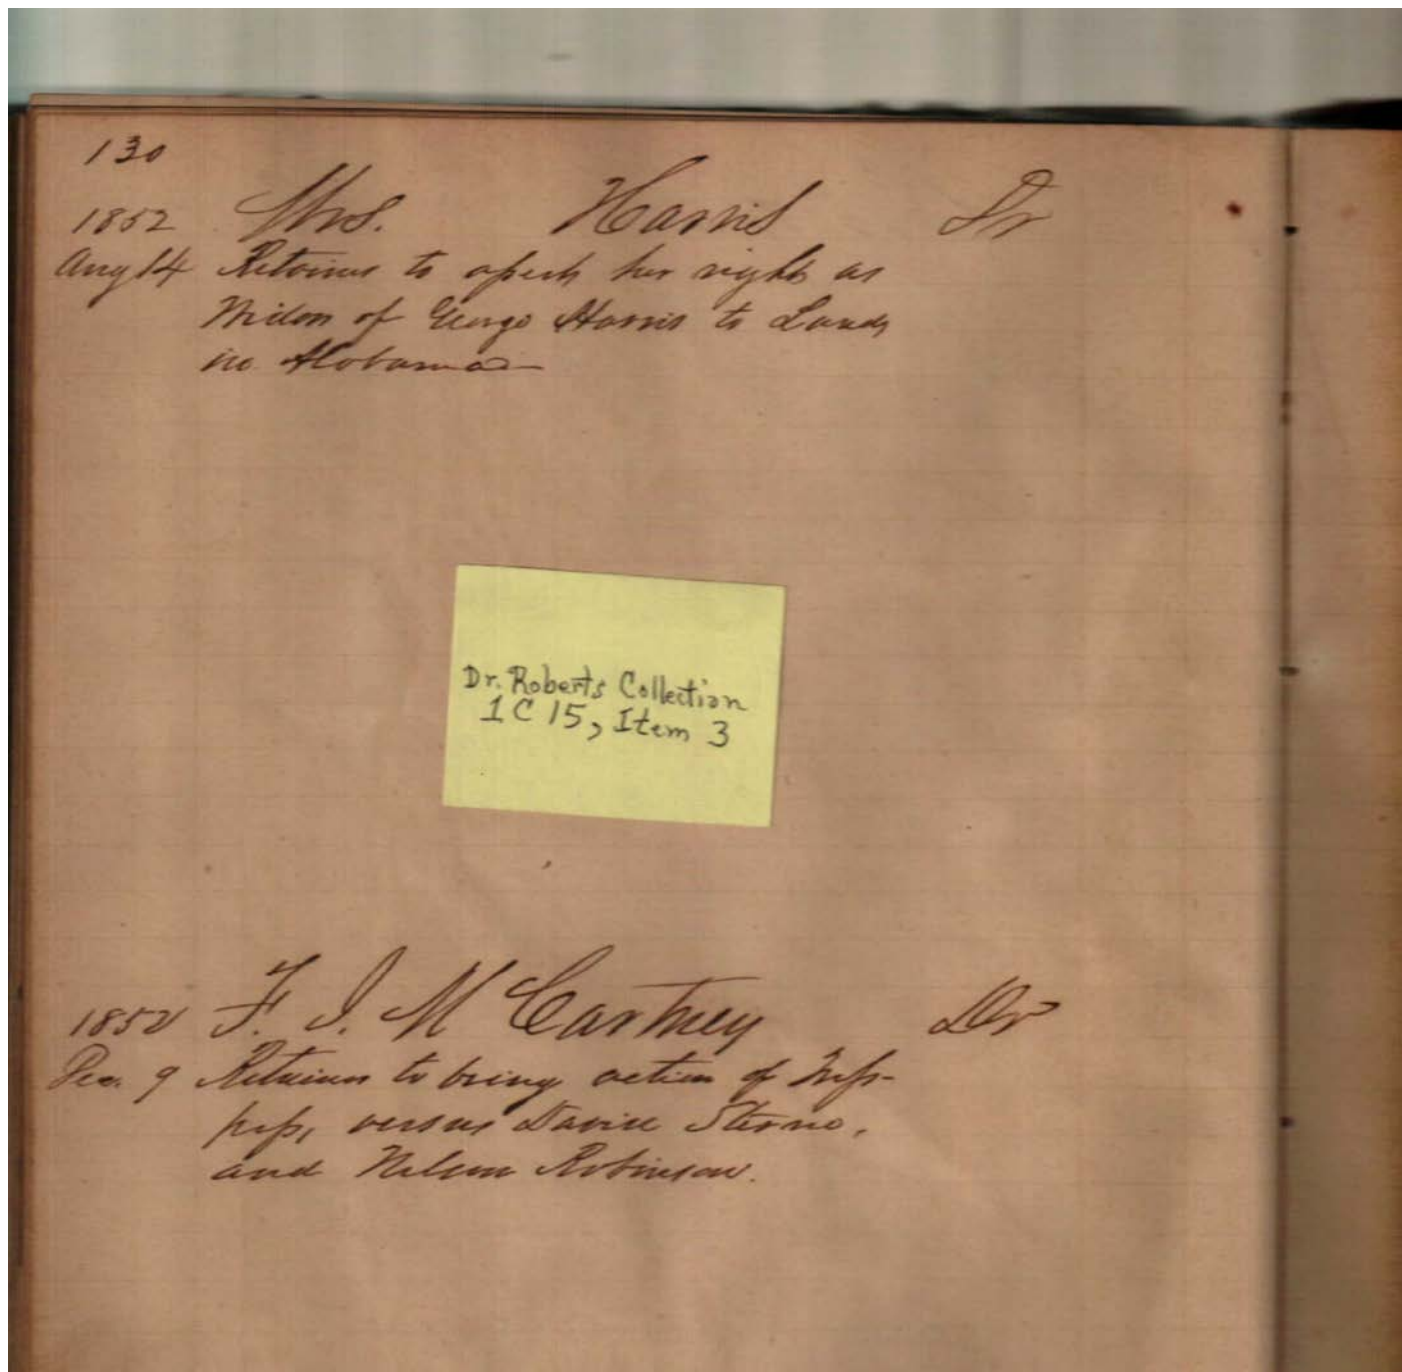 130
1852 Mrs. Harris Dr
Aug 14 Retainer to assert her right as
Widow of George Harris to Lands
in Alabama
Dr. Roberts Collection
1 C 15, Item 3
1852 F. J. McCartney Dr
Dec. 9 Retainer to bring action of Tress-
pass, versus Sterne,
and Nelson Robinson.